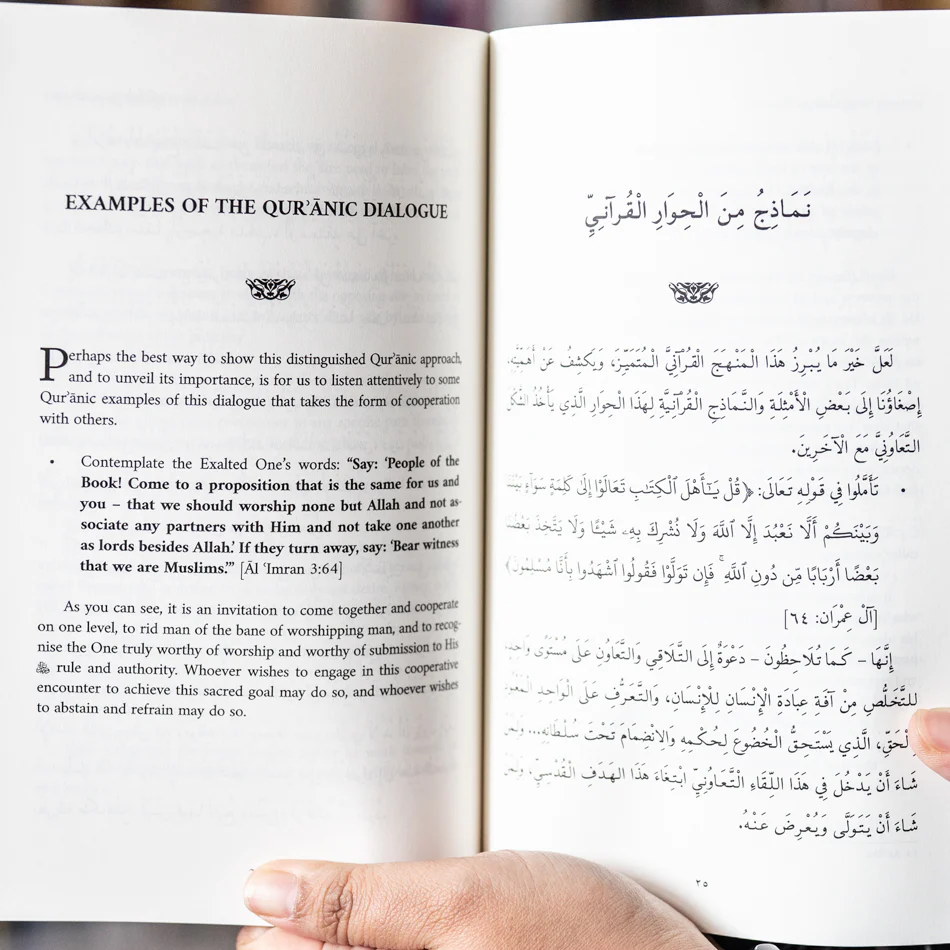 EXAMPLES OF THE QUR’ĀNIC DIALOGUE
Perhaps the best way to show this distinguished Qur’ānic approach,
and to unveil its importance, is for us to listen attentively to some
Qur’ānic examples of this dialogue that takes the form of cooperation
with others.
• Contemplate the Exalted One’s words: “Say: ‘People of the
Book! Come to a proposition that is the same for us and
you – that we should worship none but Allah and not as-
sociate any partners with Him and not take one another
as lords besides Allah.’ If they turn away, say: ‘Bear witness
that we are Muslims.’” [Āl ‘Imran 3:64]
As you can see, it is an invitation to come together and cooperate
on one level, to rid man of the bane of worshipping man, and to recog-
nise the One truly worthy of worship and worthy of submission to His
ﷻ rule and authority. Whoever wishes to engage in this cooperative
encounter to achieve this sacred goal may do so, and whoever wishes
to abstain and refrain may do so.
نَمَاذِجُ مِنَ الْحِوَارِ الْقُرآنِيِّ
لَعَلَّ خَيْرَ مَا يُبْرِزُ هَذَا الْمَنْهَجَ الْقُرْآنِيَّ الْمُتَمَيِّزَ، وَيَكْشِفُ عَنْ أَهَمِّيَّتِهِ،
إِصْغَاؤُنَا إِلَى بَعْضِ الْأَمْثِلَةِ وَالنَّمَاذِجِ الْقُرْآنِيَّةِ لِهَذَا الْحِوَارِ الَّذِي يَأْخُذُ الشَّكْلَ
التَّعَاوُنِيَّ مَعَ الْآخَرِينَ.
• تَأَمَّلُوا فِي قَوْلِهِ تَعَالَى: ﴿قُلْ يَـٰٓأَهْلَ ٱلْكِتَـٰبِ تَعَالَوْا۟ إِلَىٰ كَلِمَةٍ سَوَآءٍۭ بَيْنَنَا
وَبَيْنَكُمْ أَلَّا نَعْبُدَ إِلَّا ٱللَّهَ وَلَا نُشْرِكَ بِهِۦ شَيْـًٔا وَلَا يَتَّخِذَ بَعْضُنَا
بَعْضًا أَرْبَابًا مِّن دُونِ ٱللَّهِ ۚ فَإِن تَوَلَّوْا۟ فَقُولُوا۟ ٱشْهَدُوا۟ بِأَنَّا مُسْلِمُونَ﴾
[آلِ عِمْرَان: ٦٤]
إِنَّهَا – كَمَا تُلَاحِظُونَ – دَعْوَةٌ إِلَى التَّلَاقِي وَالتَّعَاوُنِ عَلَى مُسْتَوًى وَاحِدٍ
لِلتَّخَلُّصِ مِنْ آفَةِ عِبَادَةِ الْإِنْسَانِ لِلْإِنْسَانِ، وَالتَّعَرُّفِ عَلَى الْوَاحِدِ الْمَعْبُودِ
الْحَقِّ، الَّذِي يَسْتَحِقُّ الْخُضُوعَ لِحُكْمِهِ وَالِانْضِمَامَ تَحْتَ سُلْطَانِهِ... وَلِمَنْ
شَاءَ أَنْ يَدْخُلَ فِي هَذَا اللِّقَاءِ التَّعَاوُنِيِّ ابْتِغَاءَ هَذَا الْهَدَفِ الْقُدْسِيِّ، وَلِمَنْ
شَاءَ أَنْ يَتَوَلَّى وَيُعْرِضَ عَنْهُ.
٢٥